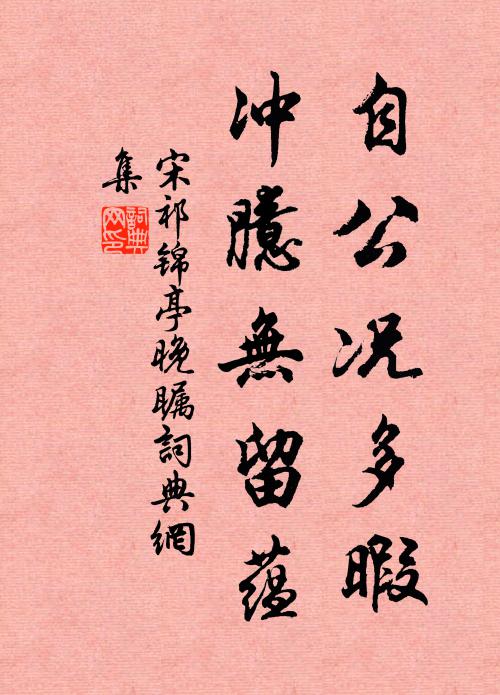 自公况多暇
冲臆無留蘊
宋祁锦亭晚瞩詞典網
集
詞典
网印